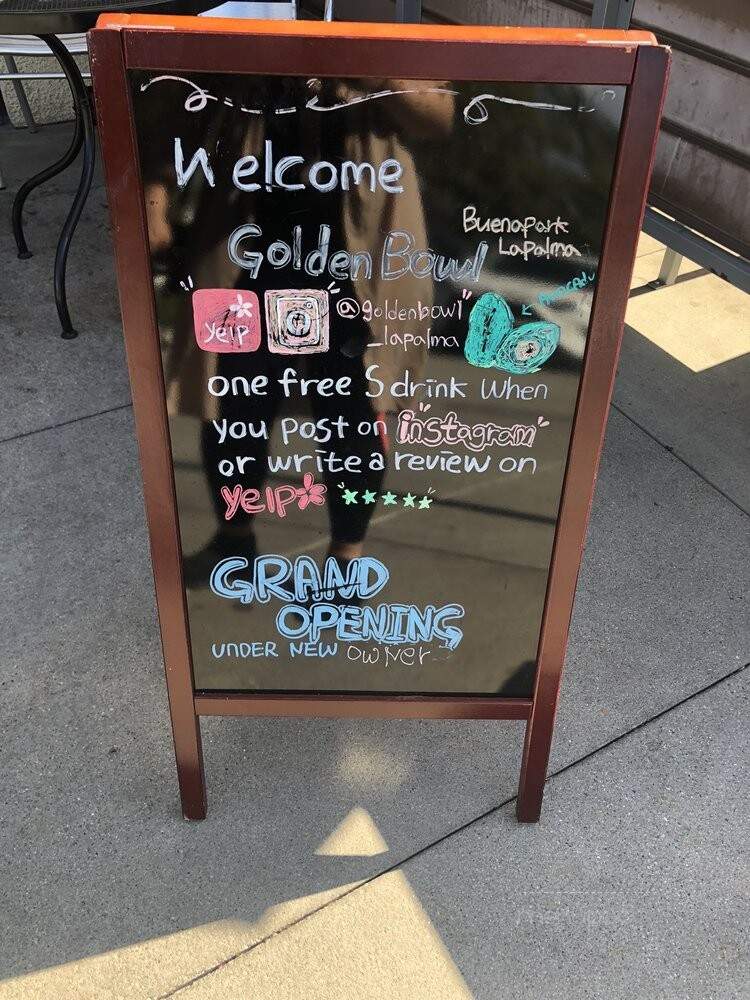 Welcome
Buenapark
Lapalma
Golden Bowl
yelp
@goldenbowl
_lapalma
AVOCADO
one free S drink when
you post on instagram
or write a review on
yelp
GRAND
OPENING
UNDER NEW OWNER